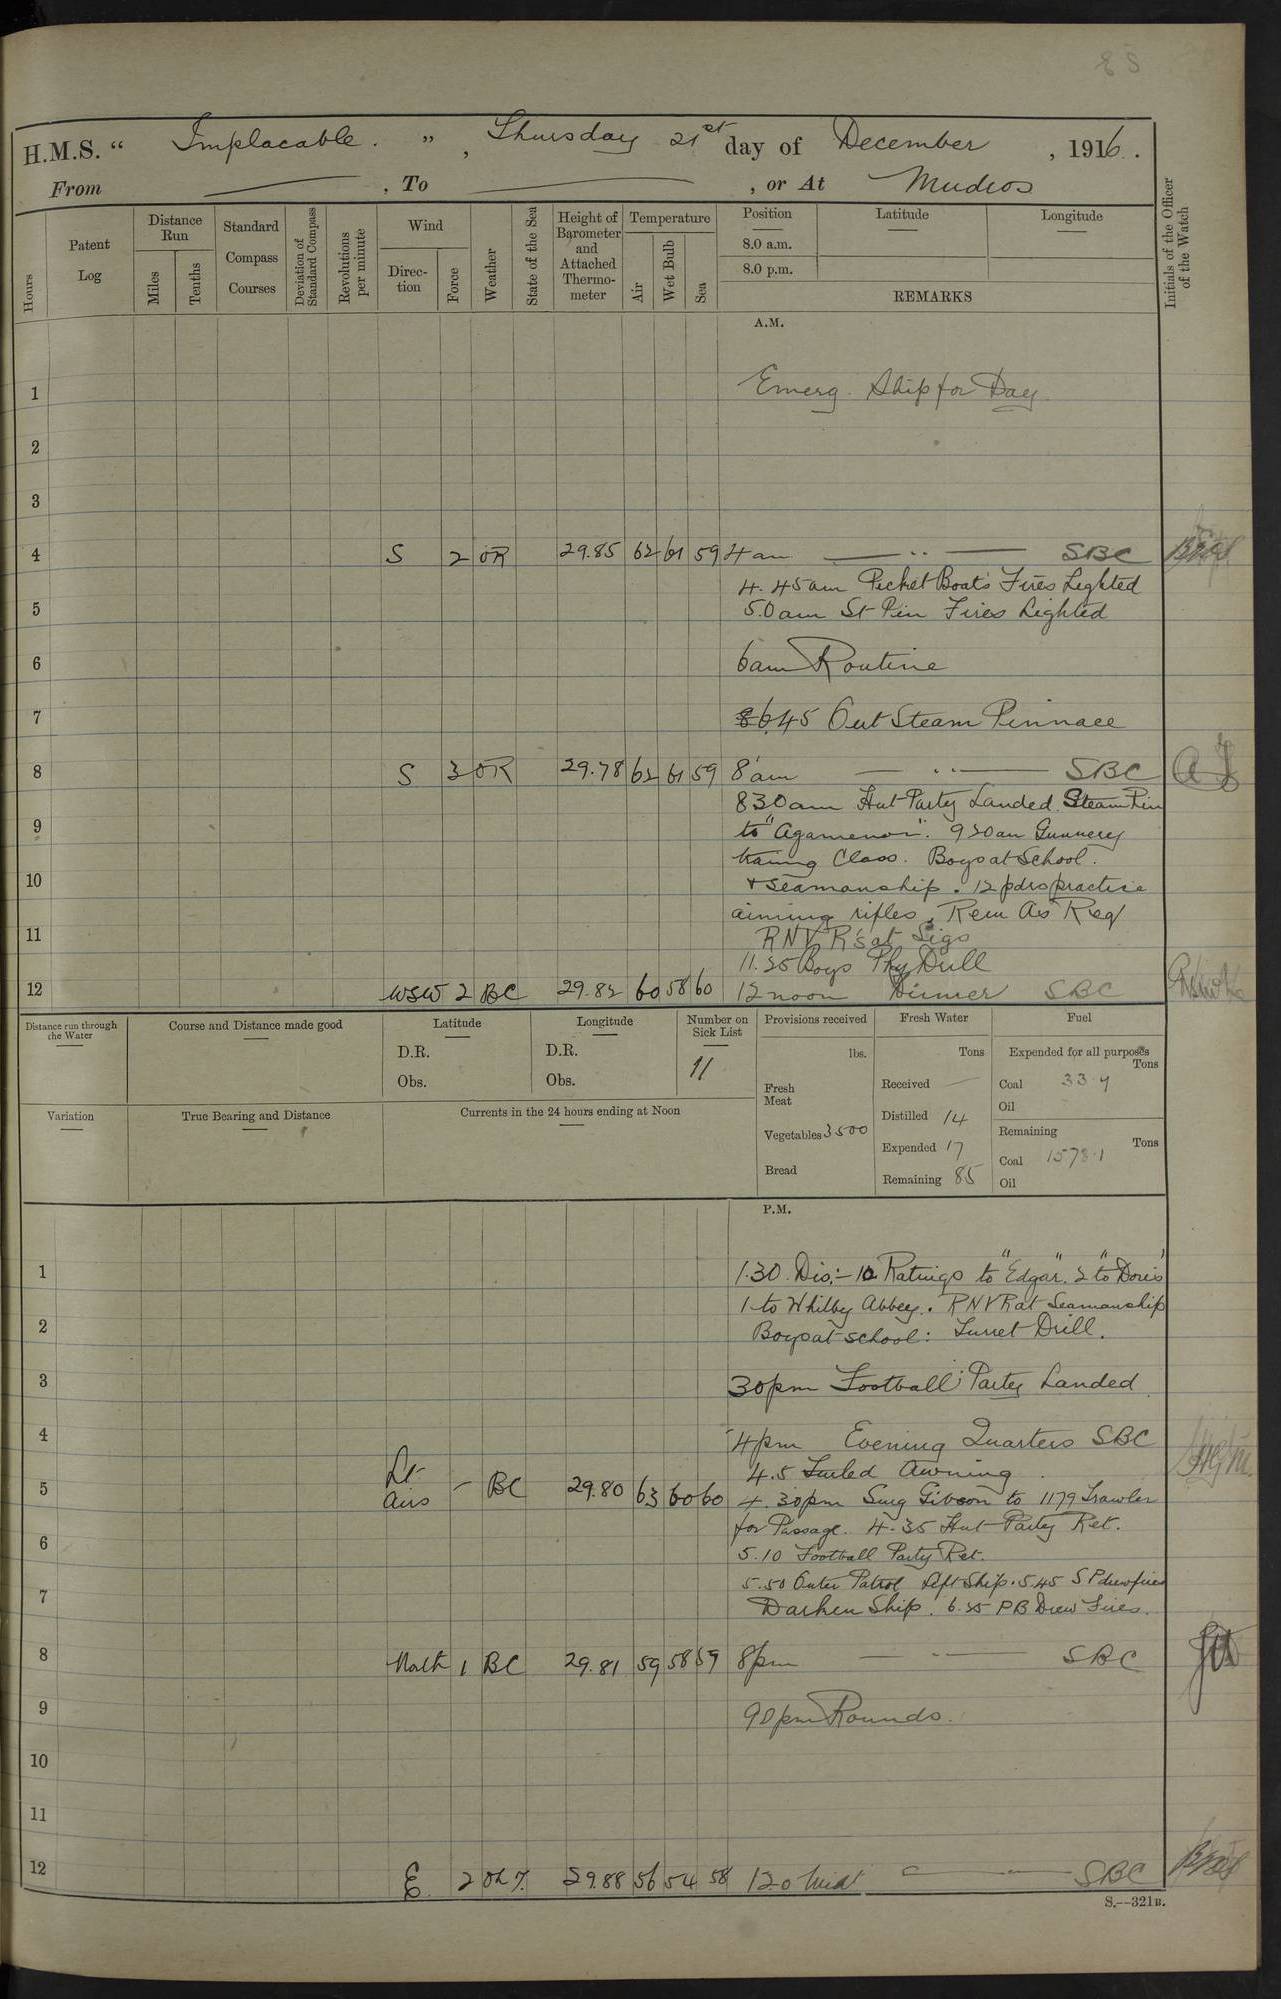 H.M.S. “ Implacable. ” , Thursday 21st day of December , 1916.
From , To , or At Mudros
Hours
Patent Log
Distance Run
Miles
Tenths
Standard Compass Courses
Deviation of Standard Compass
Revolutions per minute
Wind
Direc-tion
Force
Weather
State of the Sea
Height of Barometer and Attached Thermo-meter
Temperature
Air
Wet Bulb
Sea
Position
8.0 a.m.
8.0 p.m.
Latitude
Longitude
REMARKS
Initials of the Officer of the Watch
A.M.
1 Emerg. Ship for Day
2
3
4 S 2 OR 29.85 62 61 59 4 am SBC
4.45am Picket Boat's Fires Lighted
5 5.0am St Pin Fires Lighted
6 6am Routine
7 6.45 Out Steam Pinnace
8 S 3 OR 29.78 62 61 59 8 am SBC
830am Hut Party Landed. Steam Pin
9 to "Agamenon". 920am Gunnery
training Class. Boys at School.
10 + Seamanship. 12 pdrs practice
aiming rifles, Rem As Req
11 RNVR's at Sigs
11.25 Boys Phy Drill
12 WSW 2 BC 29.82 60 58 60 12 noon Dinner SBC
Distance run through the Water
Course and Distance made good
Latitude
D.R.
Obs.
Longitude
D.R.
Obs.
Number on Sick List
11
Provisions received
lbs.
Fresh Meat
Vegetables 3500
Bread
Fresh Water
Tons
Received
Distilled 14
Expended 17
Remaining 85
Fuel
Expended for all purposes
Tons
Coal 33.4
Oil
Remaining
Tons
Coal 1578.1
Oil
Variation
True Bearing and Distance
Currents in the 24 hours ending at Noon
P.M.
1 1.30 Dis:- 10 Ratings to "Edgar". 2 "to Doris"
1 to Whitby Abbey. RNVR at Seamanship
2 Boys at school: Turret Drill.
3 30pm Football Party Landed
4 4pm Evening Quarters SBC
4.5 Furled Awning
5 Lt Airs - BC 29.80 63 60 60 4.30pm Surg Gibson to 1179 Trawler
for Passage. 4.35 Hut Party Ret.
6 5.10 Football Party Ret.
7 5.50 Outer Patrol left Ship. 5.45 SP drew fires
Darken Ship. 6.25 PB Drew Fires.
8 North 1 BC 29.81 59 58 59 8pm SBC
9 90pm Rounds.
10
11
12 E 2 29.88 56 54 58 12.0 Midt SBC
S.--321B.